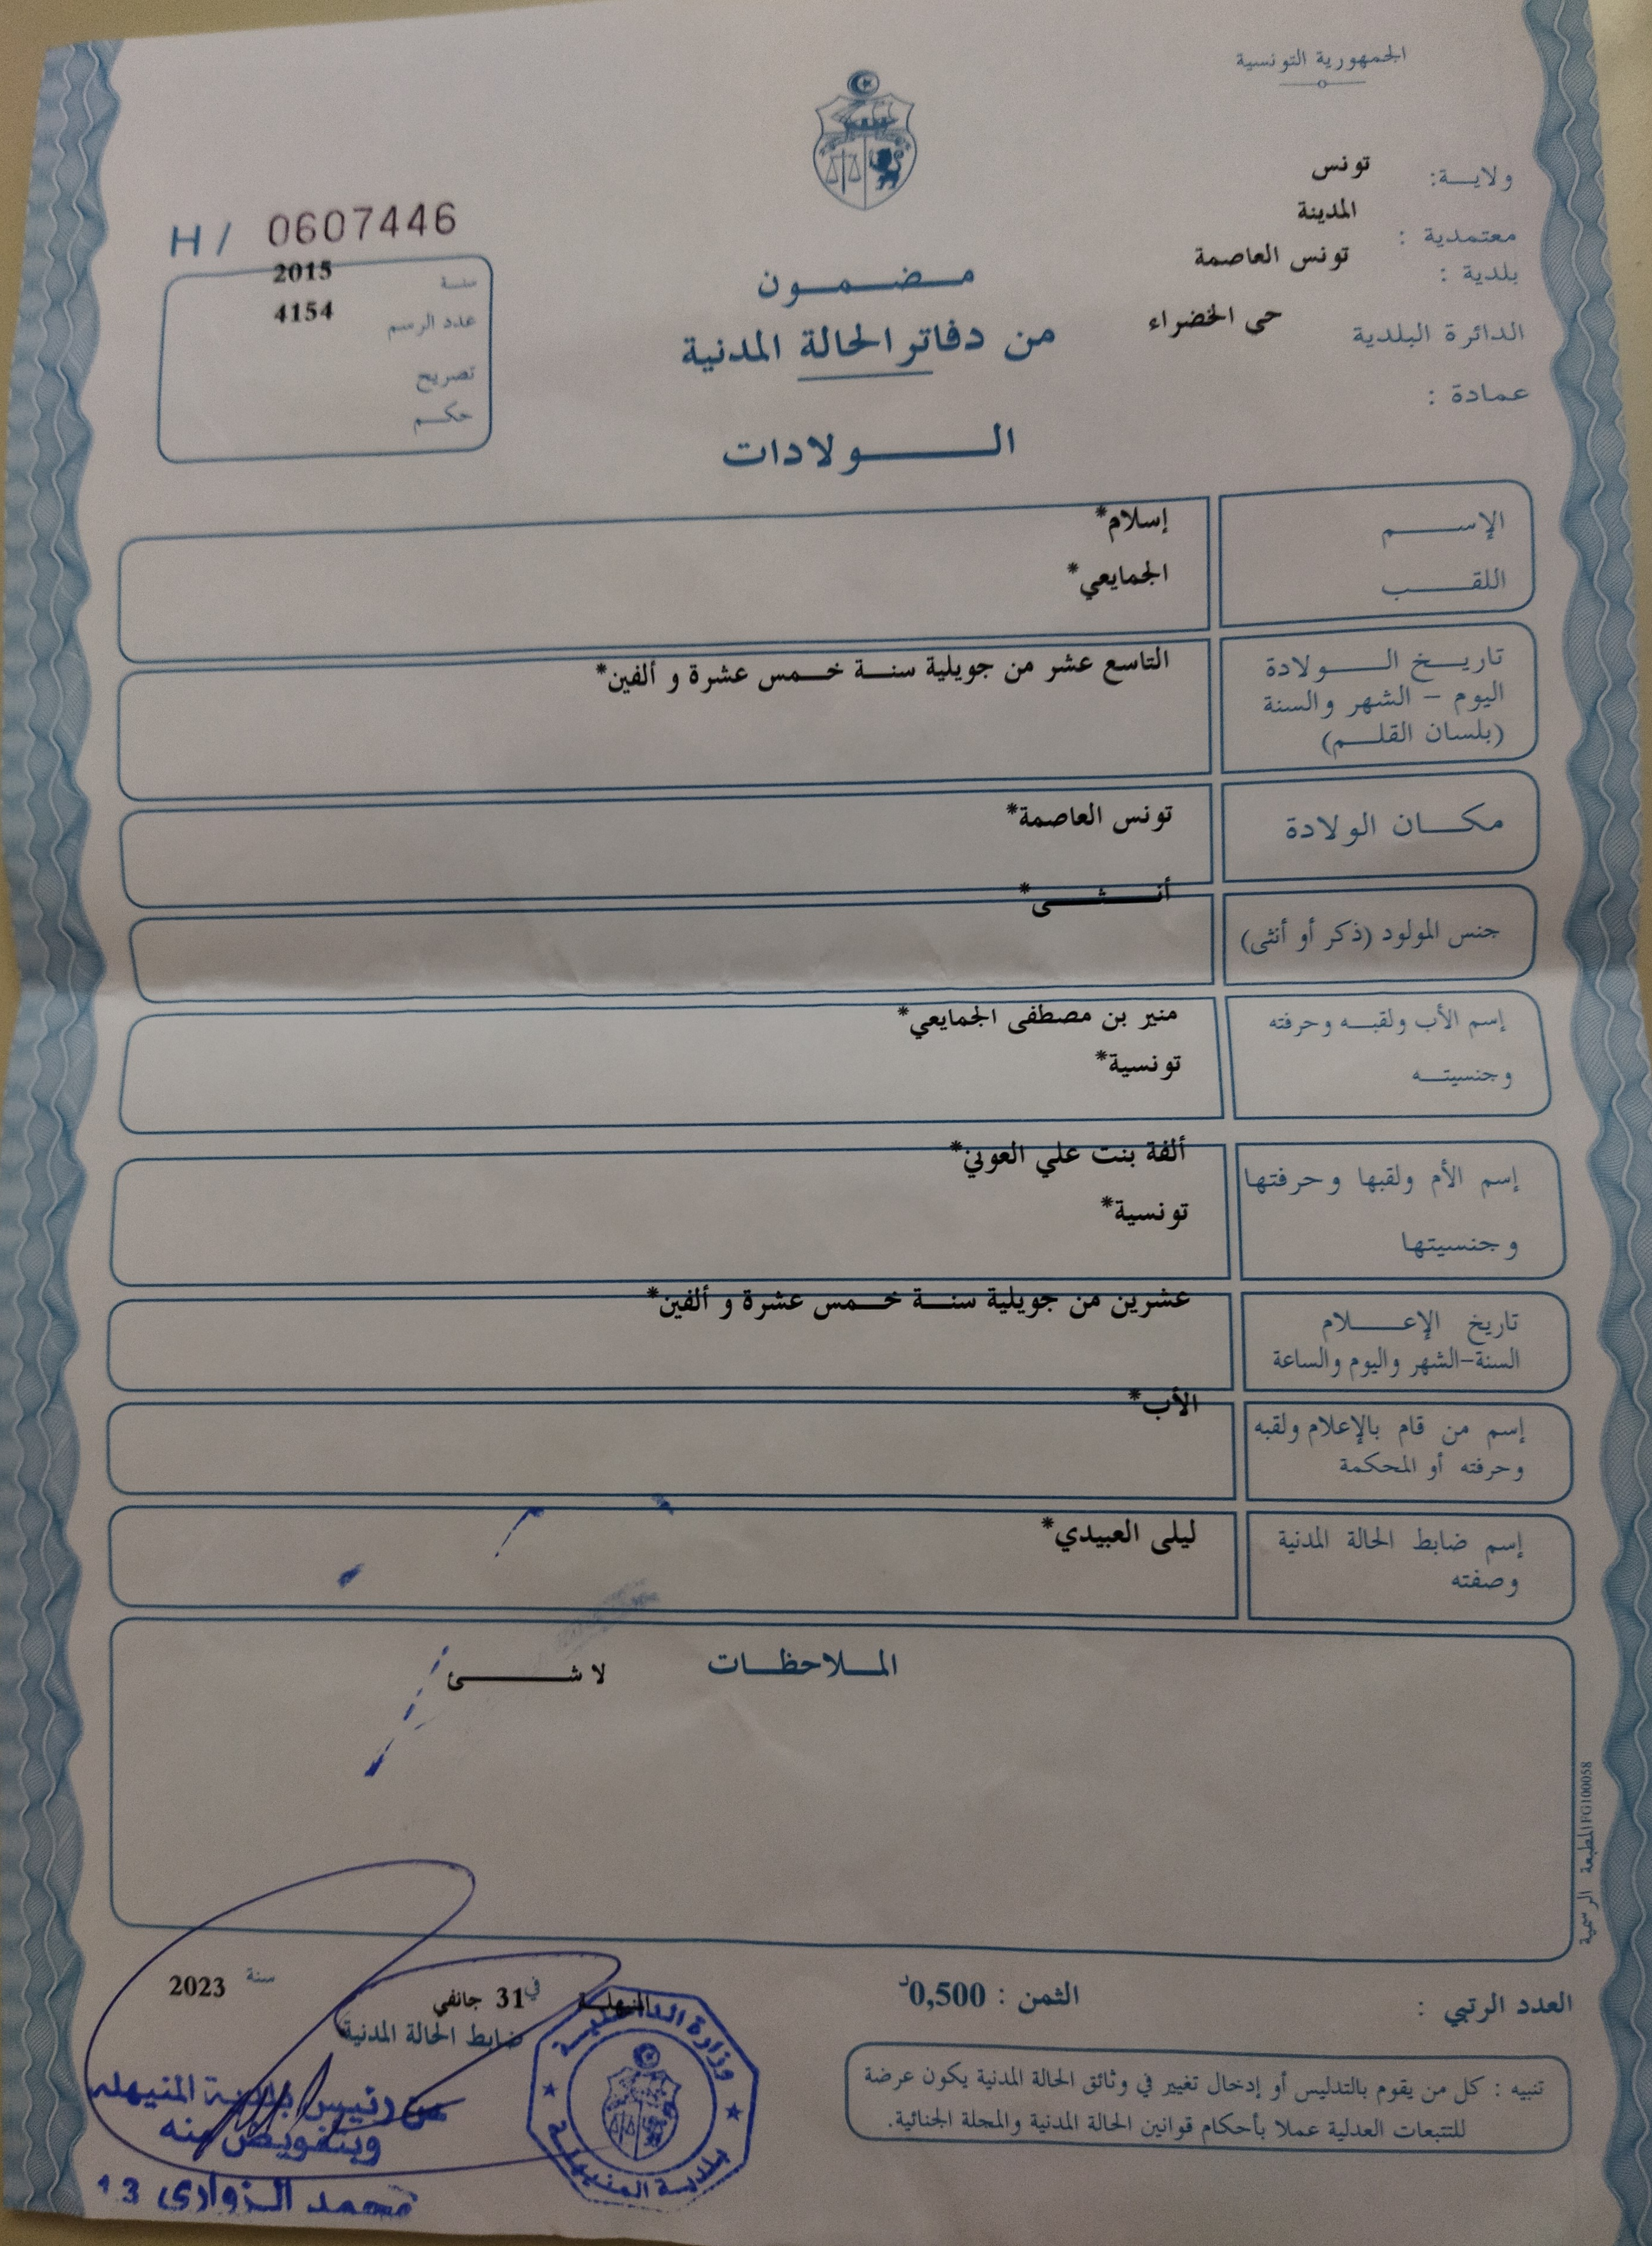 الجمهورية التونسية
ولايـــة: تونس
معتمدية : المدينة
بلدية : تونس العاصمة
الدائرة البلدية حى الخضراء
عمادة :
H / 0607446
سنة 2015
عدد الرسم 4154
تصريح
حكم
مضمون
من دفاتر الحالة المدنية
الولادات
الإسم إسلام*
اللقب الجمايعي*
تاريخ الولادة التاسع عشر من جويلية سنة خمس عشرة و ألفين*
اليوم – الشهر والسنة
(بلسان القلم)
مكان الولادة تونس العاصمة*
جنس المولود (ذكر أو أنثى) أنثى*
إسم الأب ولقبه وحرفته منير بن مصطفى الجمايعي*
وجنسيته تونسية*
إسم الأم ولقبها وحرفتها ألفة بنت علي العوني*
وجنسيتها تونسية*
تاريخ الإعلام عشرين من جويلية سنة خمس عشرة و ألفين*
السنة-الشهر واليوم والساعة
إسم من قام بالإعلام ولقبه الأب*
وحرفته أو المحكمة
إسم ضابط الحالة المدنية ليلى العبيدي*
وصفته
الملاحظات لا شئ
المطبعة الرسمية FG100058
العدد الرتبي :
الثمن : 0,500د
المنيهلة في 31 جانفي سنة 2023
ضابط الحالة المدنية
عن رئيس بلدية المنيهلة
وبتفويض منه
محمد الزواري 13
وزارة الداخلية
بلدية المنيهلة
تنبيه : كل من يقوم بالتدليس أو إدخال تغيير في وثائق الحالة المدنية يكون عرضة
للتتبعات العدلية عملا بأحكام قوانين الحالة المدنية والمجلة الجنائية.